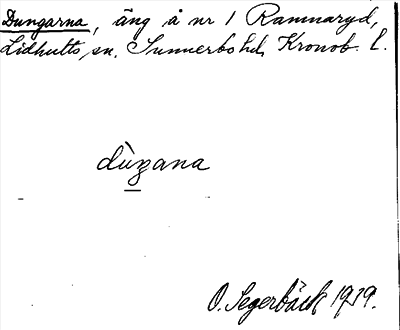 Dungarna, äng å nr 1 Ramnaryd,
Lidhults sn. Sunnerbo hd, Kronob. l.
dùꞑana
O. Segerbäck 1939.